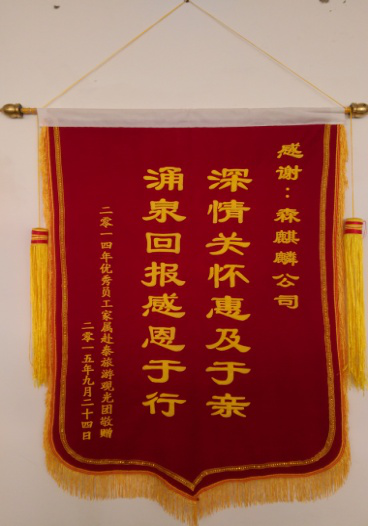 感谢：森麒麟公司
深情关怀惠及于亲
涌泉回报感恩于行
二零一四年优秀员工家属赴泰旅游观光团敬赠
二零一五年九月二十四日